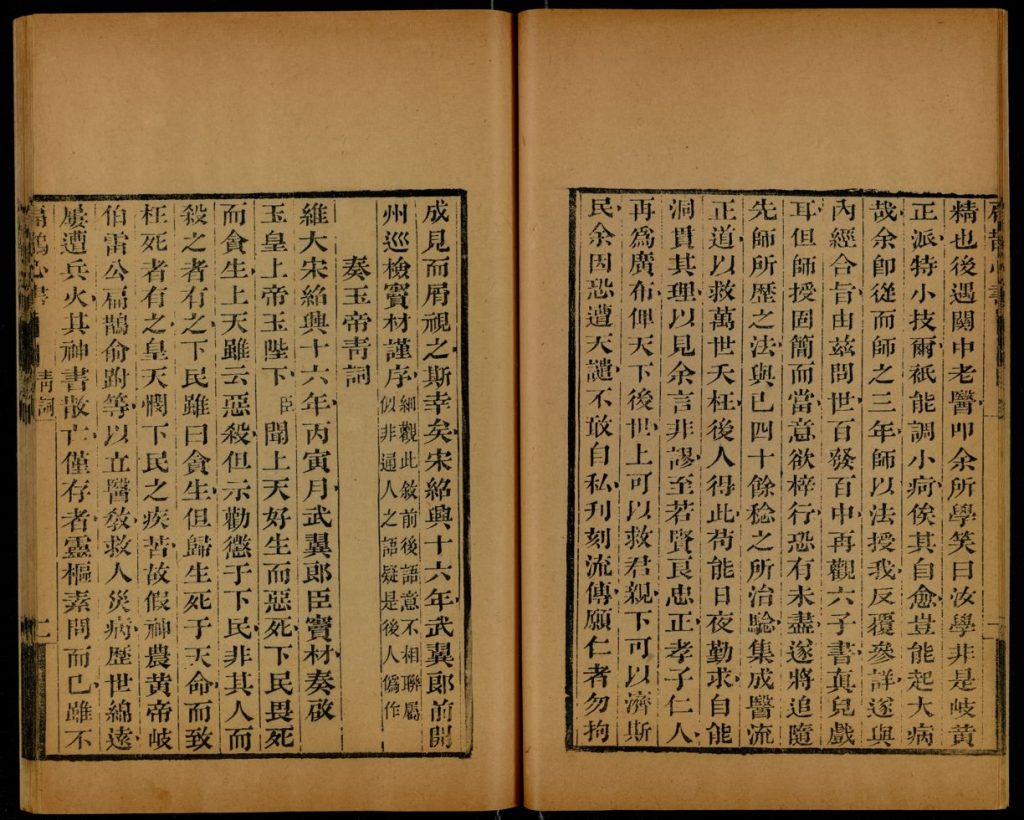 精也後遇關中老醫叩余所學笑曰汝學非是岐黃
正派特小技爾祇能調小疴俟其自愈豈能起大病
哉余卽從而師之三年師以法授我反覆參詳遂與
內經合旨由兹問世百發百中再觀六子書眞兒戲
耳但師授固簡而當意欲梓行恐有未盡遂將追隨
先師所歷之法與己四十餘稔之所治驗集成醫流
正道以救萬世夭枉後人得此苟能日夜勤求自能
洞貫其理以見余言非謬至若賢良忠正孝子仁人
再爲廣布俾天下後世上可以救君親下可以濟斯
民余因恐遭天譴不敢自私刋刻流傳願仁者勿拘
成見而屑視之斯幸矣宋紹興十六年武翼郞前開
州巡檢竇材謹序細觀此敘前後語意不相聯屬
似非通人之語疑是後人僞作
奏玉帝靑詞
維大宋紹興十六年丙寅月武翼郞臣竇材奏啟
玉皇上帝玉陛下臣聞上天好生而惡死下民畏死
而貪生上天雖云惡殺但示勸懲于下民非其人而
殺之者有之下民雖曰貪生但歸生死于天命而致
枉死者有之皇天憫下民之疾苦故假神農黃帝岐
伯雷公扁鵲俞跗等以立醫敎救人災病歷世綿遠
屢遭兵火其神書散亡僅存者靈樞素問而已雖不
扁鵲心書 靑詞 二